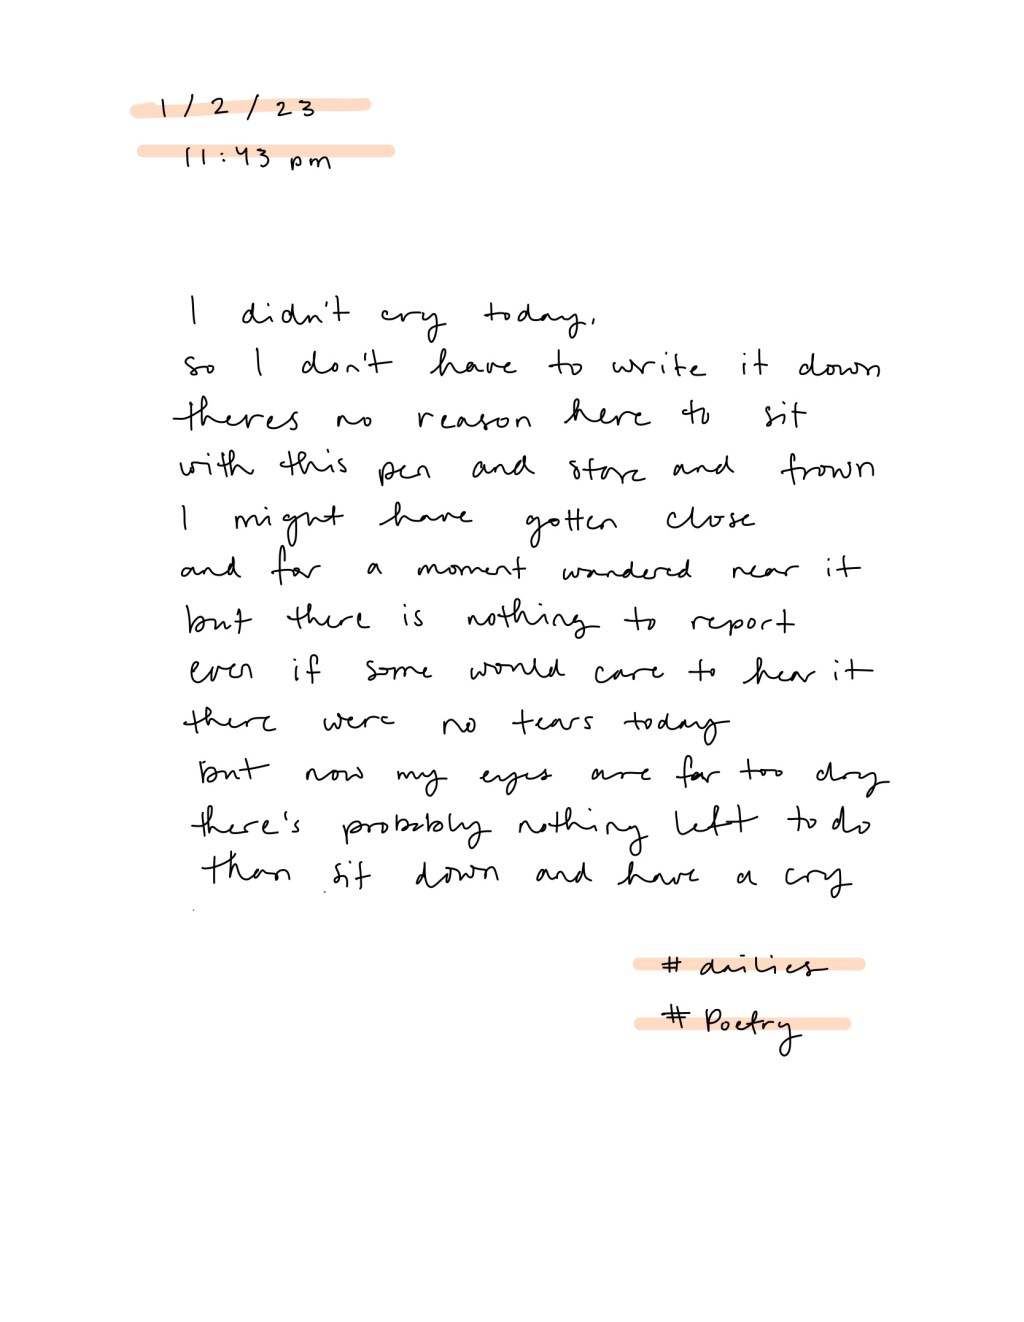 1/2/23
11:43 pm
I didn't cry today,
so I don't have to write it down
theres no reason here to sit
with this pen and stare and frown
I might have gotten close
and for a moment wandered near it
but there is nothing to report
even if some would care to hear it
there were no tears today
but now my eyes are far too dry
there's probably nothing left to do
than sit down and have a cry
# dailies
# Poetry